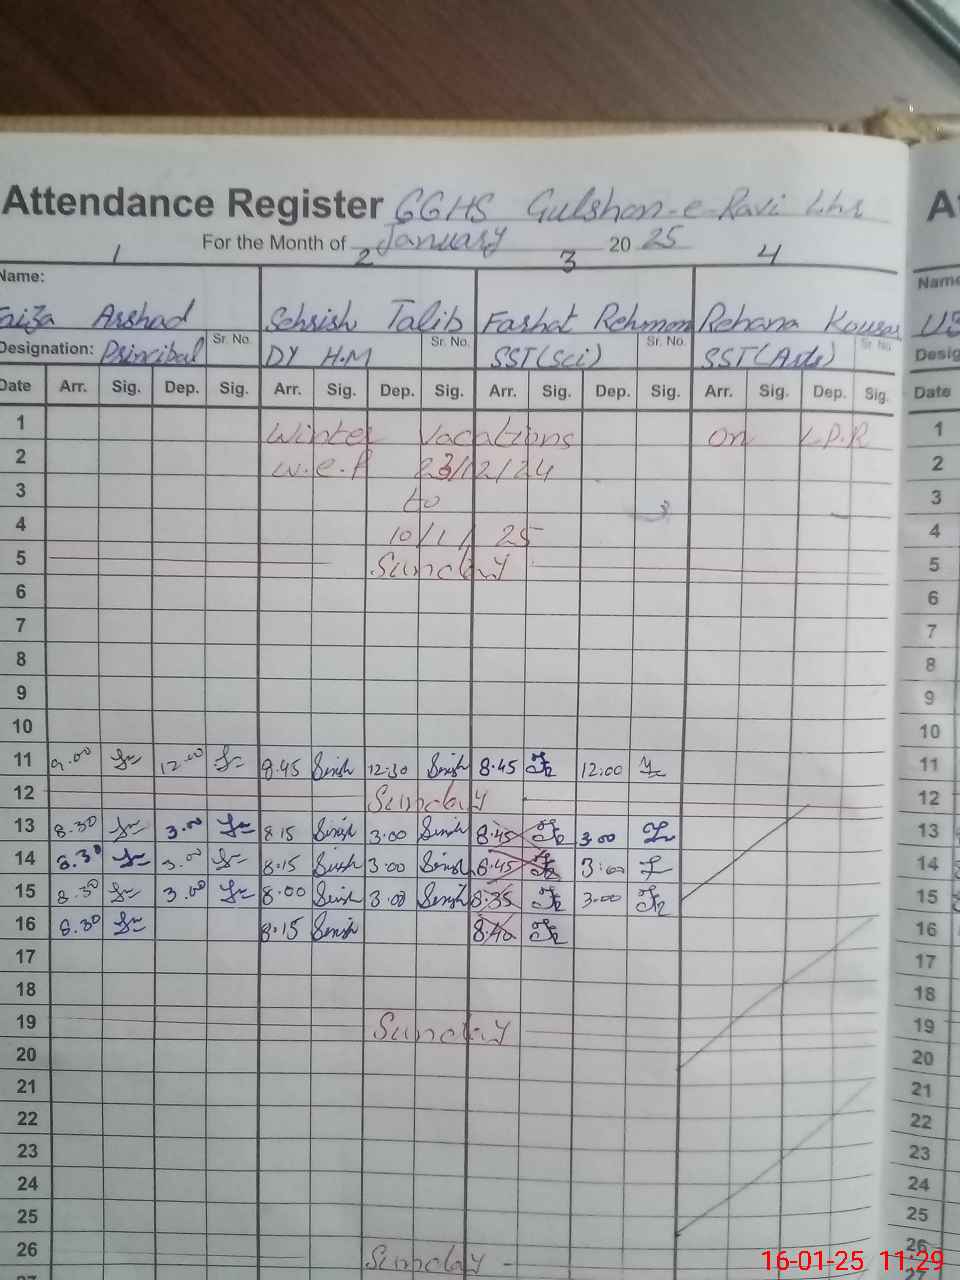 Attendance Register GGHS Gulshan-e-Ravi Lhr
For the Month of January 20 25
1 2 3 4
Name:
Faiza Arshad Sehrish Talib Farhat Rehman Rehana Kousar
Designation: Principal Sr. No. DY H.M Sr. No. SST(Sci) Sr. No. SST(Arts) Sr. No.
Date Arr. Sig. Dep. Sig. Arr. Sig. Dep. Sig. Arr. Sig. Dep. Sig. Arr. Sig. Dep. Sig. Date
1 Winter Vacations on L.P.R 1
2 w.e.f 23/12/24 2
3 to 3
4 10/1/25 4
5 Sunday 5
6 6
7 7
8 8
9 9
10 10
11 9.00 12.00 8.45 12:30 8.45 12:00 11
12 Sunday 12
13 8.30 3.00 8.15 3.00 8.45 3.00 13
14 8.30 3.00 8.15 3.00 8.45 3:00 14
15 8.30 3.00 8:00 3.00 8.35 3.00 15
16 8.30 8.15 8.40 16
17 17
18 18
19 Sunday 19
20 20
21 21
22 22
23 23
24 24
25 25
26 Sunday 26
16-01-25 11:29